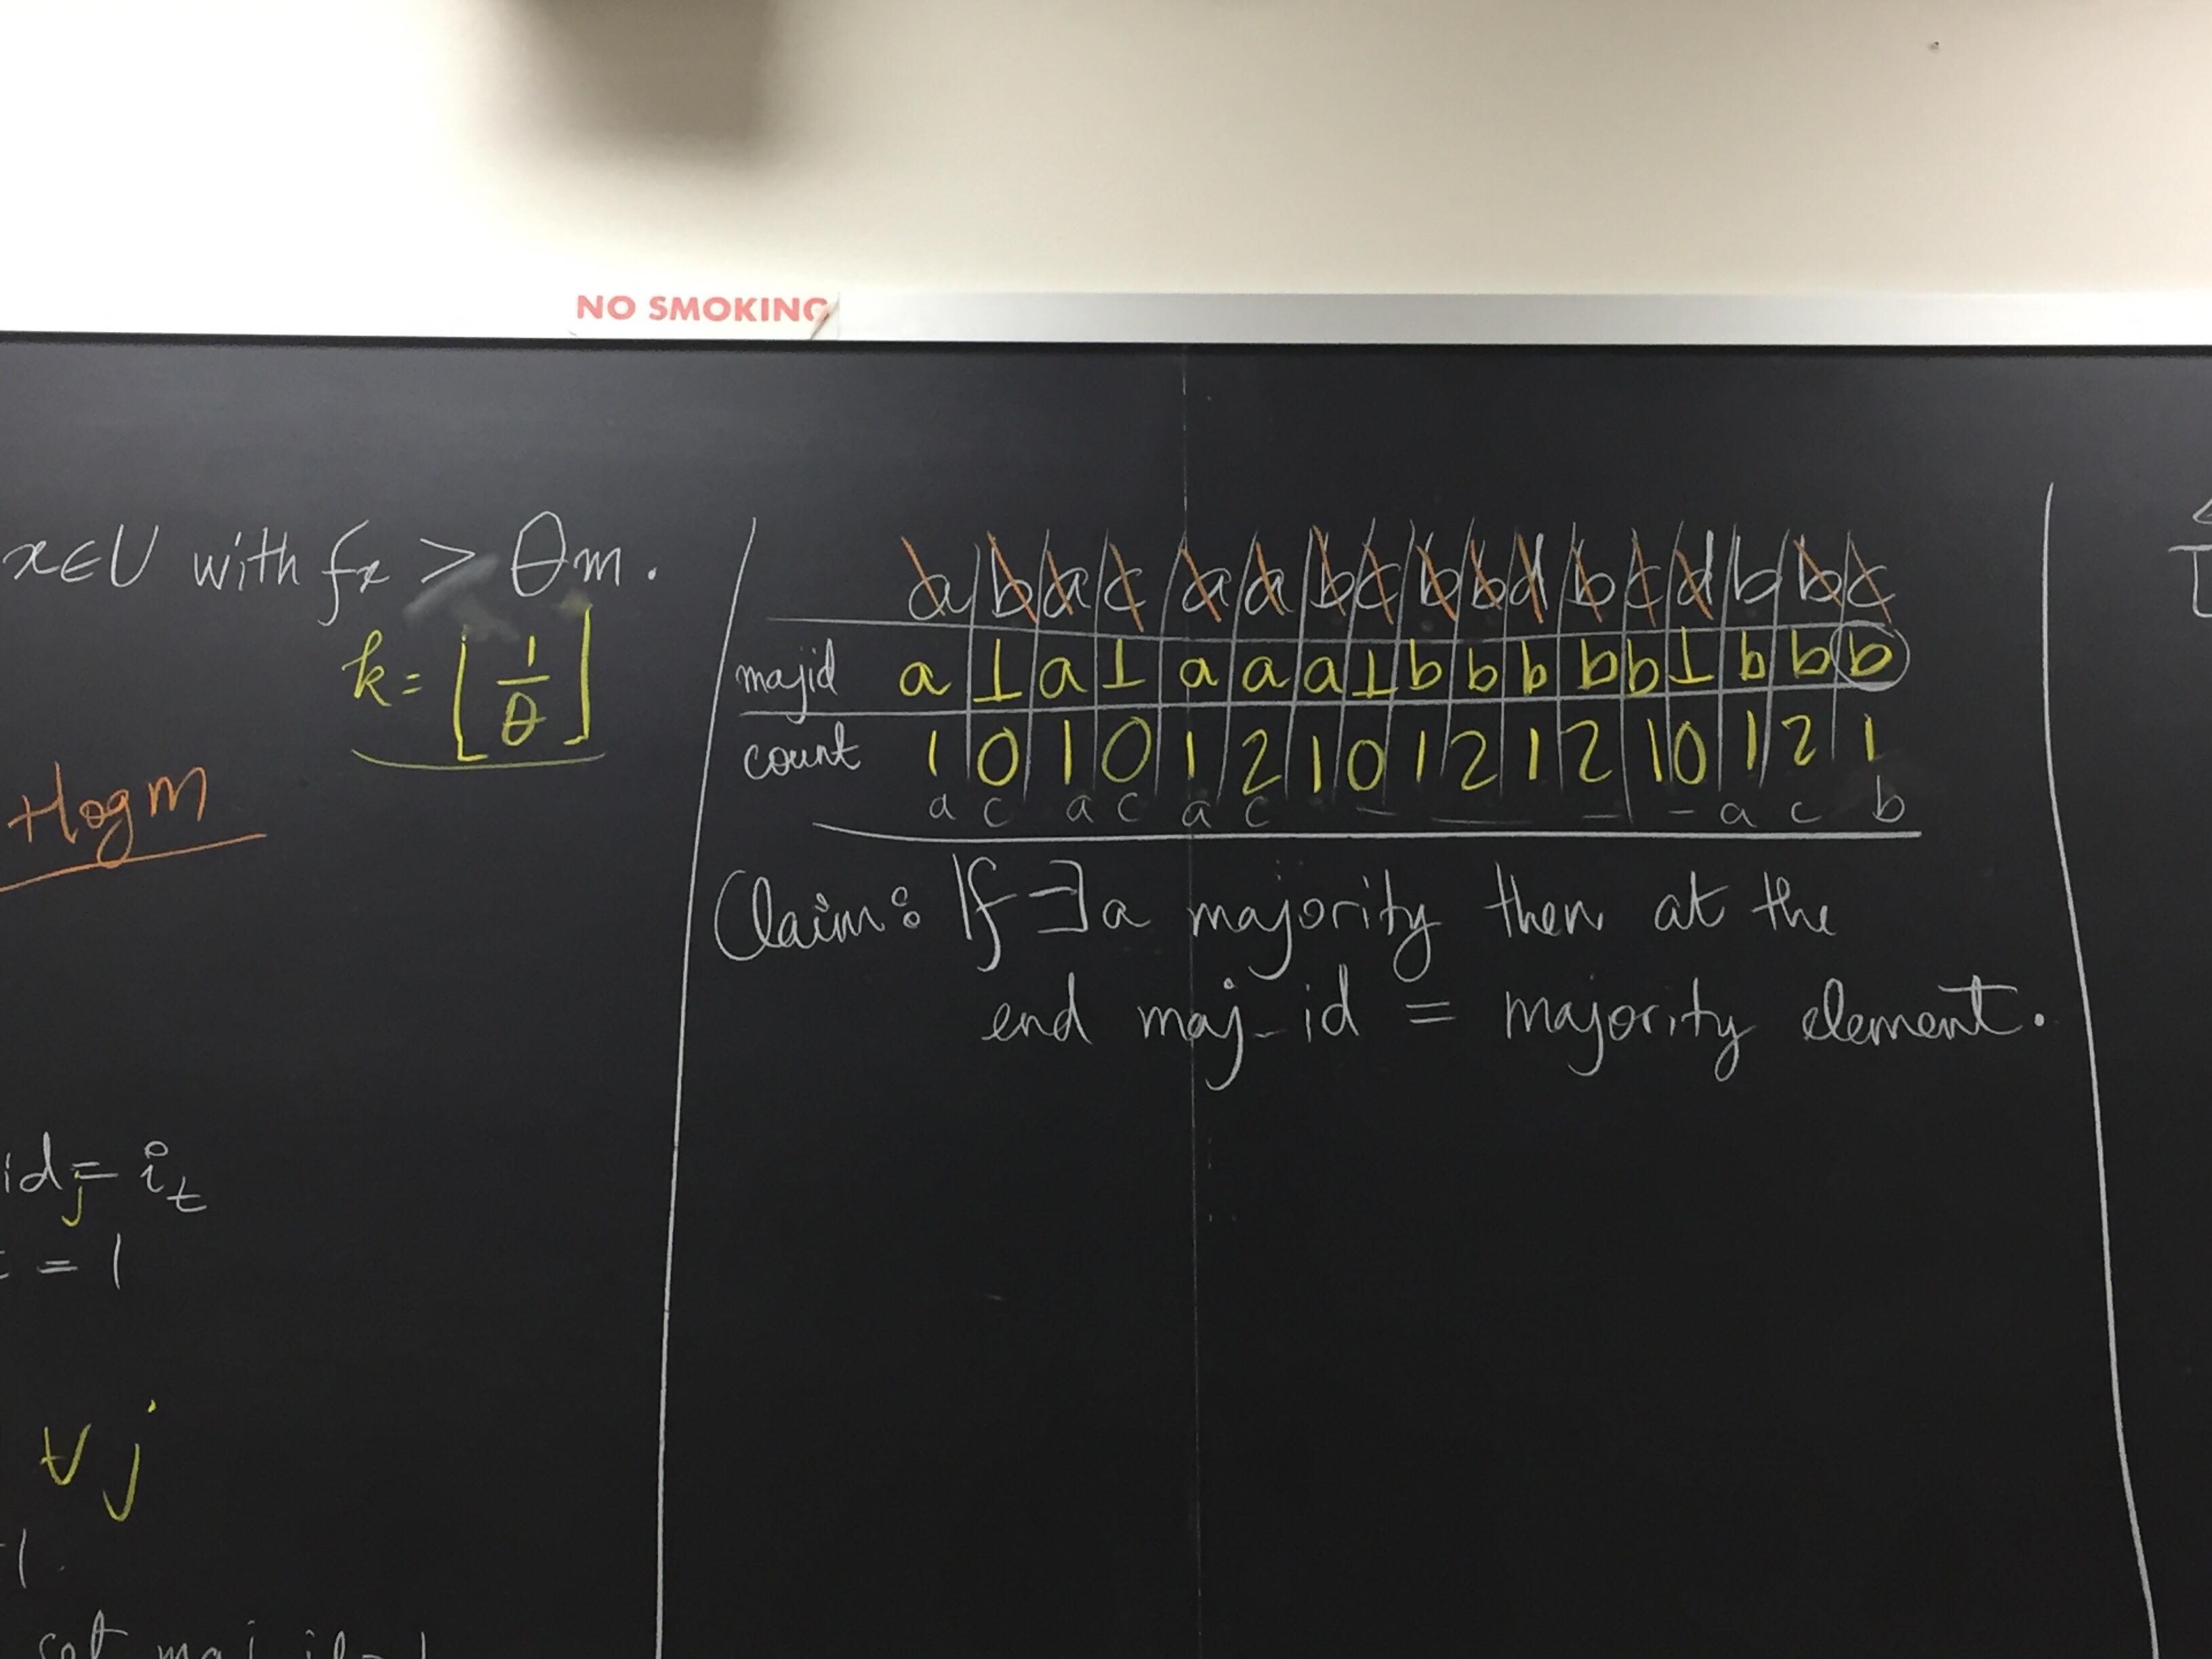 NO SMOKING
x∈U with fx > θm.
k = ⌊1/θ⌋
+logm
id_j = i_t
= 1
∀ j
a b a c a a b c b b d b c d b b c
majid a ⊥ a ⊥ a a a ⊥ b b b b b ⊥ b b b
count 1 0 1 0 1 2 1 0 1 2 1 2 1 0 1 2 1
a c a c a c – — – – a c b
Claim: If ∃ a majority then at the
end maj-id = majority element.